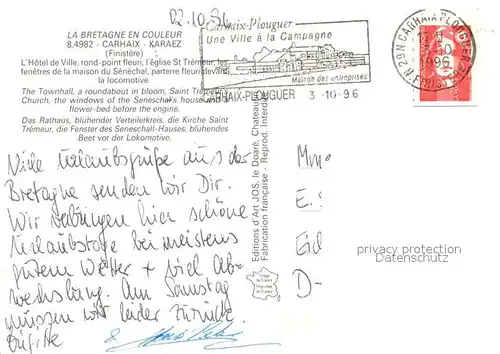 02.10.
LA BRETAGNE EN COULEUR
8.4982 - CARHAIX - KARAEZ
(Finistère)
L'Hôtel de Ville, rond-point fleuri, l'église St Trémeur, les
fenêtres de la maison du Sénéchal, parterre fleuri devant
la locomotive.
The Townhall, a roundabout in bloom, Saint Trémeur
Church, the windows of the Seneschal's house and
flower-bed before the engine.
Das Rathaus, blühender Verteilerkreis, die Kirche Saint
Trémeur, die Fenster des Seneschall-Hauses, blühendes
Beet vor der Lokomotive.
Carhaix-Plouguer
Une Ville à la Campagne
Maison des entreprises
CARHAIX-PLOUGUER 3-10-96
29N CARHAIX PLOUGUER
1996
N. FINISTERE
Viele Urlaubsgrüße aus der
Bretagne senden wir Dir.
Wir verbringen hier schöne
Urlaubstage bei meistens
gutem Wetter + viel Ab-
wechslung. Am Samstag
müssen wir leider zurück.
Brigitte
&
Editions d'Art JOS, le Doaré, Chateaulin
Fabrication française - Reprod. Interdite
E.
D-
privacy protection
Oldthing.de